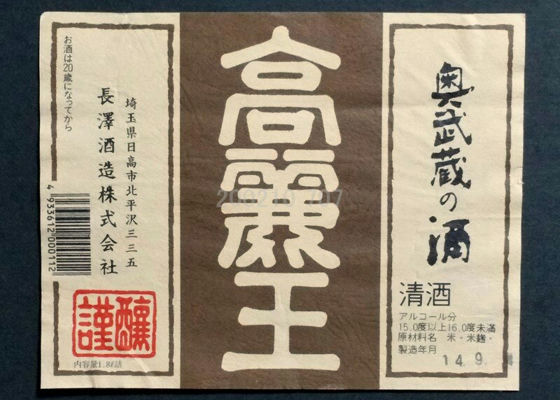 奥武蔵の酒
清酒
アルコール分
15.0度以上16.0度未満
原材料名 米・米麹・
製造年月
14.9.
高麗王
埼玉県日高市北平沢三三五
長澤酒造株式会社
お酒は20歳になってから
4933612000112
謹醸
内容量1.8ℓ詰